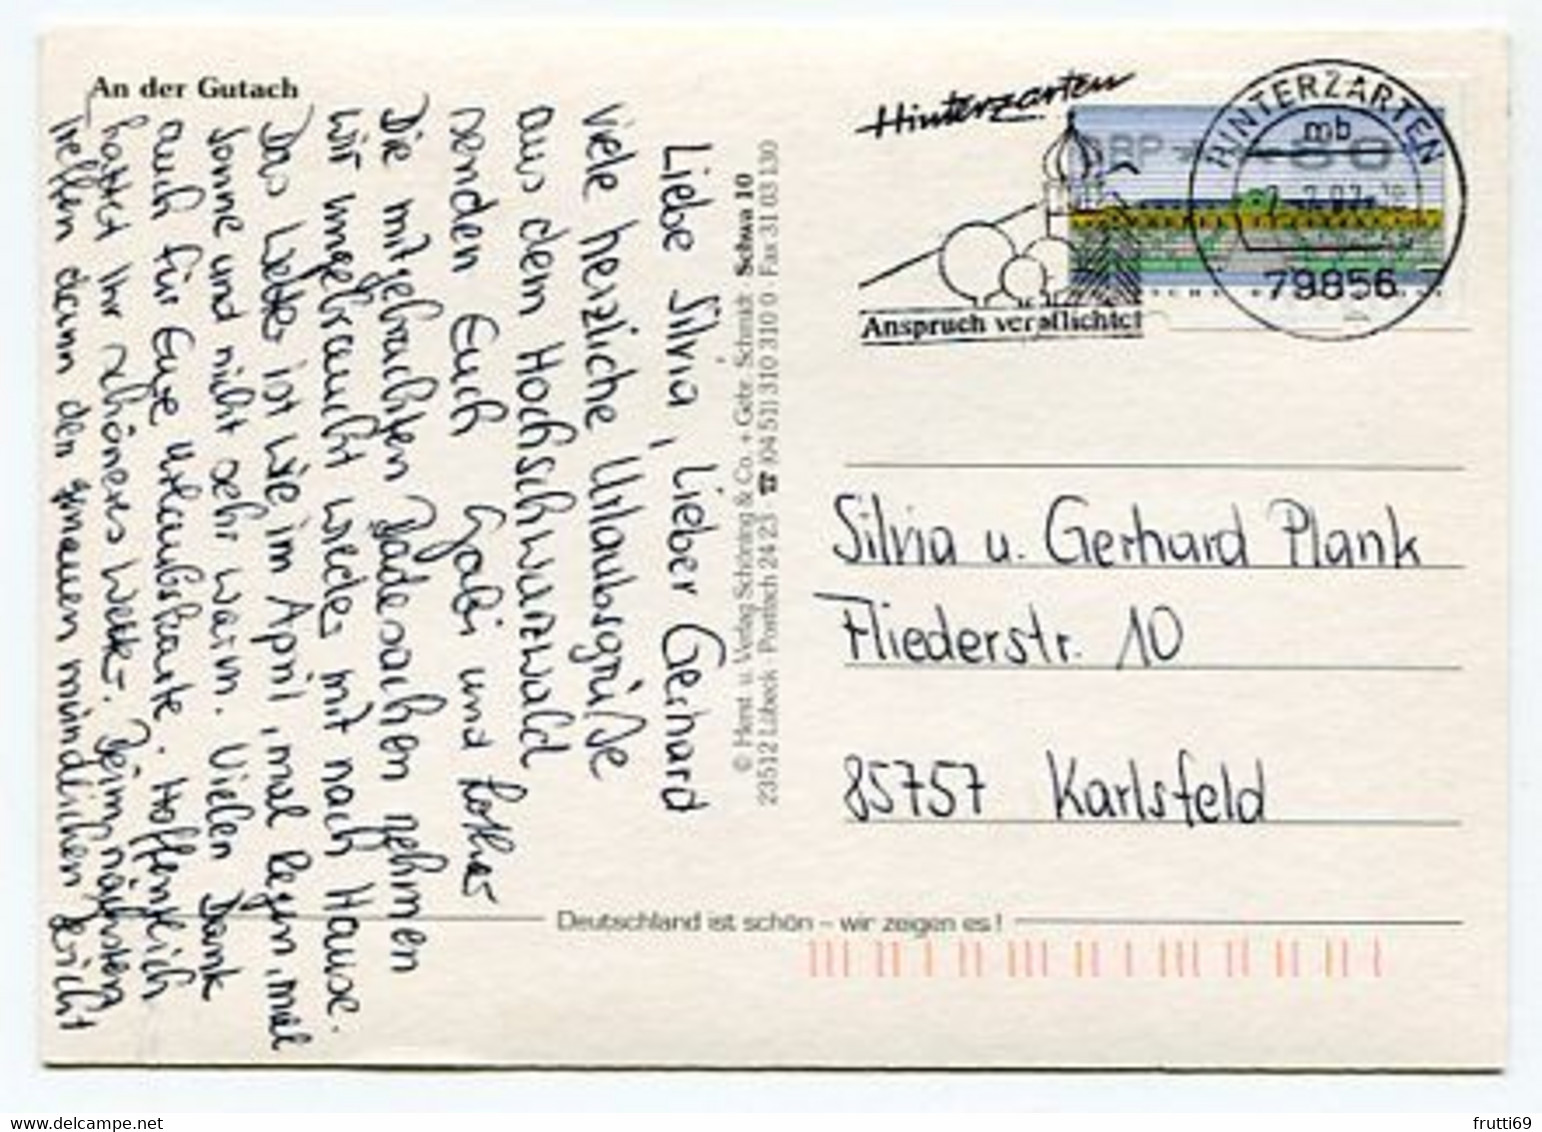 An der Gutach
Liebe Silvia, Lieber Gerhard
Viele herzliche Urlaubsgrüße
aus dem Hochschwarzwald
senden Euch Gabi und Lothar
Die mitgebrachten Badesachen nehmen
wir ungebraucht wieder mit nach Hause.
Das Wetter ist wie im April, mal Regen, mal
Sonne und nicht sehr warm. Vielen Dank
auch für Eure Urlaubskarte. Hoffentlich
hattet Ihr schöneres Wetter. Beim nächsten
Treffen dann den genauen mündlichen Bericht
© Herst. u. Verlag Schöning & Co. + Gebr. Schmidt · Schwa 10
23512 Lübeck · Postfach 24 23 · ☎ (04 51) 310 310 0 · Fax 31 03 130
Hinterzarten
Anspruch verpflichtet
DBP
HINTERZARTEN
mb
79856
Silvia u. Gerhard Plank
Fliederstr. 10
85757 Karlsfeld
Deutschland ist schön – wir zeigen es!
frutti69